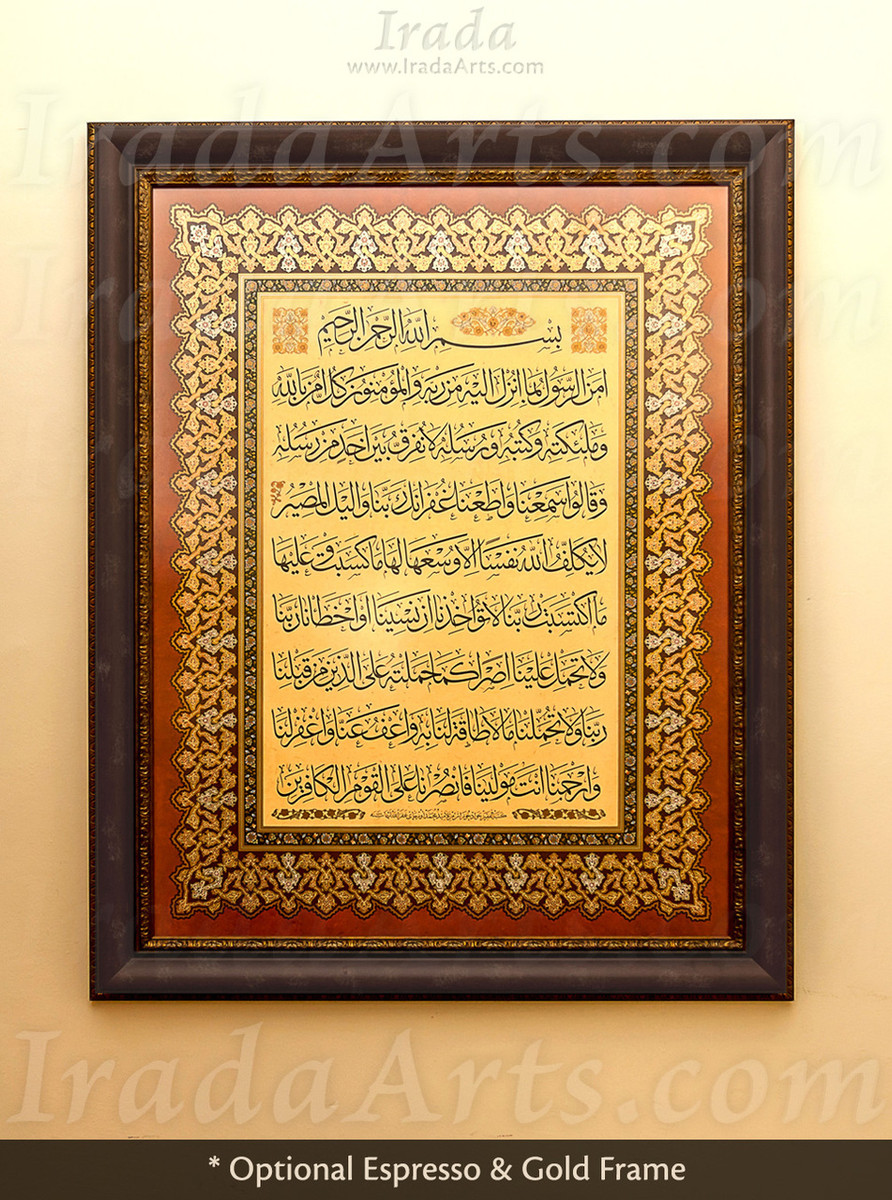 Irada
www.IradaArts.com
IradaArts.com
بسم الله الرحمن الرحيم
امن الرسول بما انزل اليه من ربه والمؤمنون كل امن بالله
وملئكته وكتبه ورسله لا نفرق بين احد من رسله
وقالوا سمعنا واطعنا غفرانك ربنا واليك المصير
لا يكلف الله نفسا الا وسعها لها ما كسبت وعليها
ما اكتسبت ربنا لا تؤاخذنا ان نسينا او اخطانا ربنا
ولا تحمل علينا اصرا كما حملته على الذين من قبلنا
ربنا ولا تحملنا ما لا طاقة لنا به واعف عنا واغفر لنا
وارحمنا انت مولينا فانصرنا على القوم الكافرين
IradaArts.com
* Optional Espresso & Gold Frame